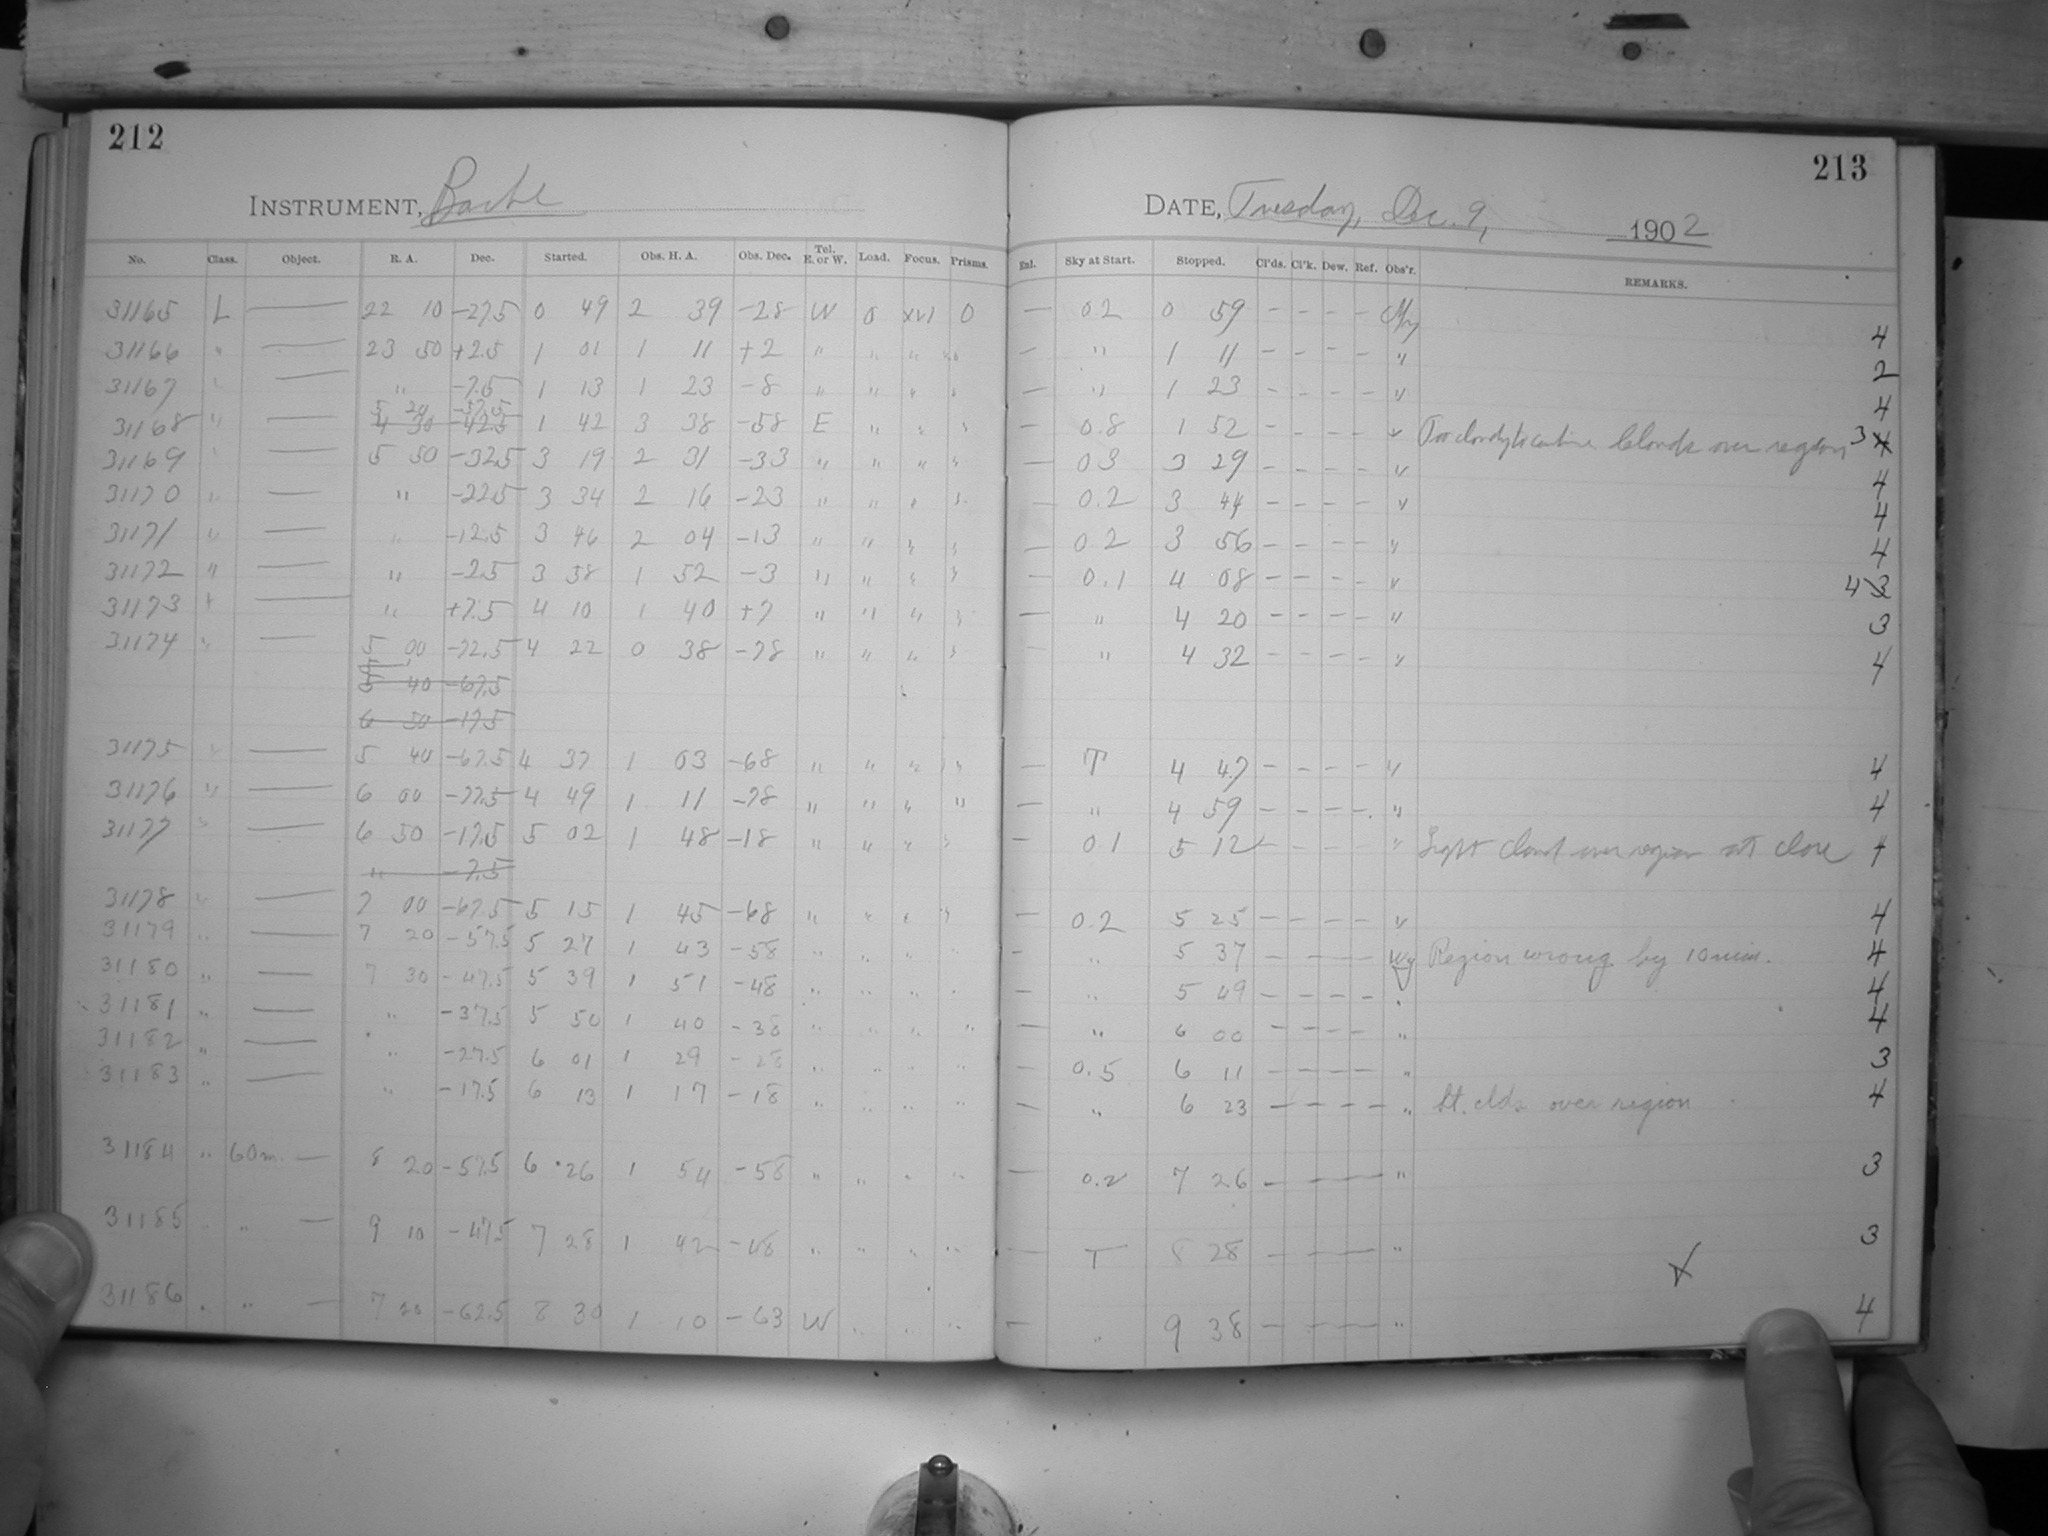 212
213
INSTRUMENT, Bache
DATE, Tuesday, Dec. 9, 1902
No. Class. Object. R. A. Dec. Started. Obs. H. A. Obs. Dec. Tel. E. or W. Load. Focus. Prisms. Enl. Sky at Start. Stopped. Cl'ds. Cl'k. Dew. Ref. Obs'r. REMARKS.
31165 L — 22 10 -27.5 0 49 2 39 -28 W 0 XVI 0 — 0.2 0 59 - - - - 4
31166 " — 23 50 +2.5 1 01 1 11 +2 " " " " — " 1 11 - - - - " 2
31167 " — " -7.5 1 13 1 23 -8 " " " " — " 1 23 - - - - " 4
5 20 -57.5
31168 " — 4 30 -42.5 1 42 3 38 -58 E " " " — 0.8 1 52 - - - - " Too cloudy to continue Clouds over region 3 4
31169 " — 5 50 -32.5 3 19 2 31 -33 " " " " — 0.3 3 29 - - - - " 4
31170 " — " -22.5 3 34 2 16 -23 " " " " — 0.2 3 44 - - - - " 4
31171 " — " -12.5 3 46 2 04 -13 " " " " — 0.2 3 56 - - - - " 4
31172 " — " -2.5 3 58 1 52 -3 " " " " — 0.1 4 08 - - - - " 4 3
31173 " — " +7.5 4 10 1 40 +7 " " " " — " 4 20 - - - - " 3
31174 " — 5 00 -77.5 4 22 0 38 -78 " " " " — " 4 32 - - - - " 4
5 40 -67.5
6 50 -17.5
31175 " — 5 40 -67.5 4 37 1 03 -68 " " " " — T 4 47 - - - - " 4
31176 " — 6 00 -77.5 4 49 1 11 -78 " " " " — " 4 59 - - - - " 4
31177 " — 6 50 -17.5 5 02 1 48 -18 " " " " — 0.1 5 12 - - - - " Light cloud over region at close 4
" -7.5
31178 " — 7 00 -67.5 5 15 1 45 -68 " " " " — 0.2 5 25 - - - - " 4
31179 " — 7 20 -57.5 5 27 1 43 -58 " " " " — " 5 37 - - - - Wy Region wrong by 10 min. 4
31180 " — 7 30 -47.5 5 39 1 51 -48 " " " " — " 5 49 - - - - " 4
31181 " — " -37.5 5 50 1 40 -38 " " " " — " 6 00 - - - - " 4
31182 " — " -27.5 6 01 1 29 -28 " " " " — 0.5 6 11 - - - - " 3
31183 " — " -17.5 6 13 1 17 -18 " " " " — " 6 23 - - - - " Lt. clds. over region 4
31184 " 60m. — 8 20 -57.5 6 26 1 54 -58 " " " " — 0.2 7 26 - - - - " 3
31185 " " — 9 10 -47.5 7 28 1 42 -48 " " " " — T 8 28 - - - - " 3
31186 " " — 7 20 -62.5 8 30 1 10 -63 W " " " — " 9 38 - - - - " 4